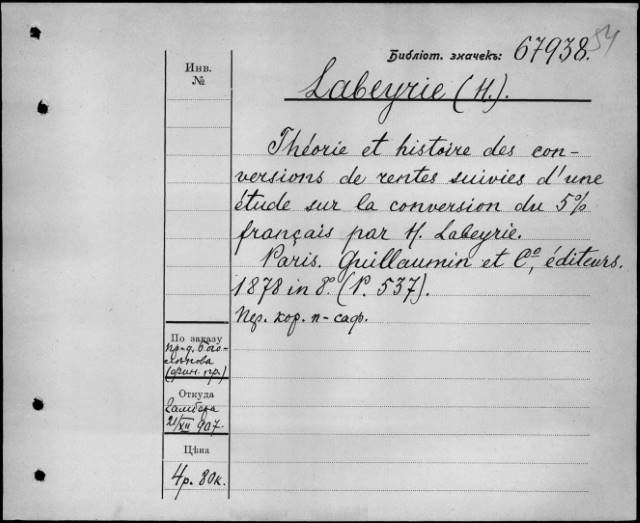 Библіот. значекъ: 67938. 54
Инв.
№
Labeyrie (H.).
Théorie et histoire des con-
versions de rentes suivies d'une
étude sur la conversion du 5%
français par H. Labeyrie.
Paris. Guillaumin et Cº, éditeurs.
1878 in 8º. (P. 537).
Пер. кор. п-саф.
По заказу
пр-д. Бого-
лѣпова
(фин. пр.)
Откуда
Ламберъ
21/XII 907.
Цѣна
4р. 80к.